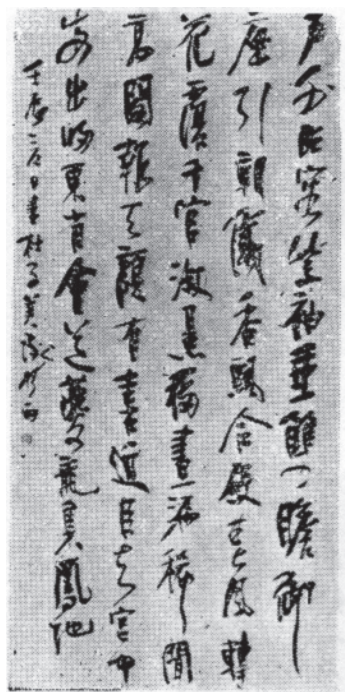 戶外昭容紫袖垂雙瞻御
座引朝儀香飄合殿春風轉
花覆千官淑景移晝漏稀聞
高閣報天顏有喜近臣知宮中
每出歸東省會送夔龍集鳳池
日書杜子美